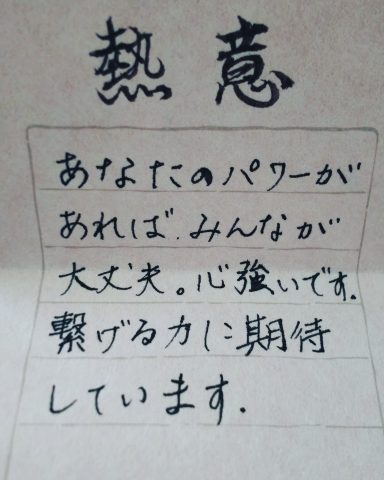 熱意
あなたのパワーが
あれば、みんなが
大丈夫。心強いです.
繋げる力に期待
しています.